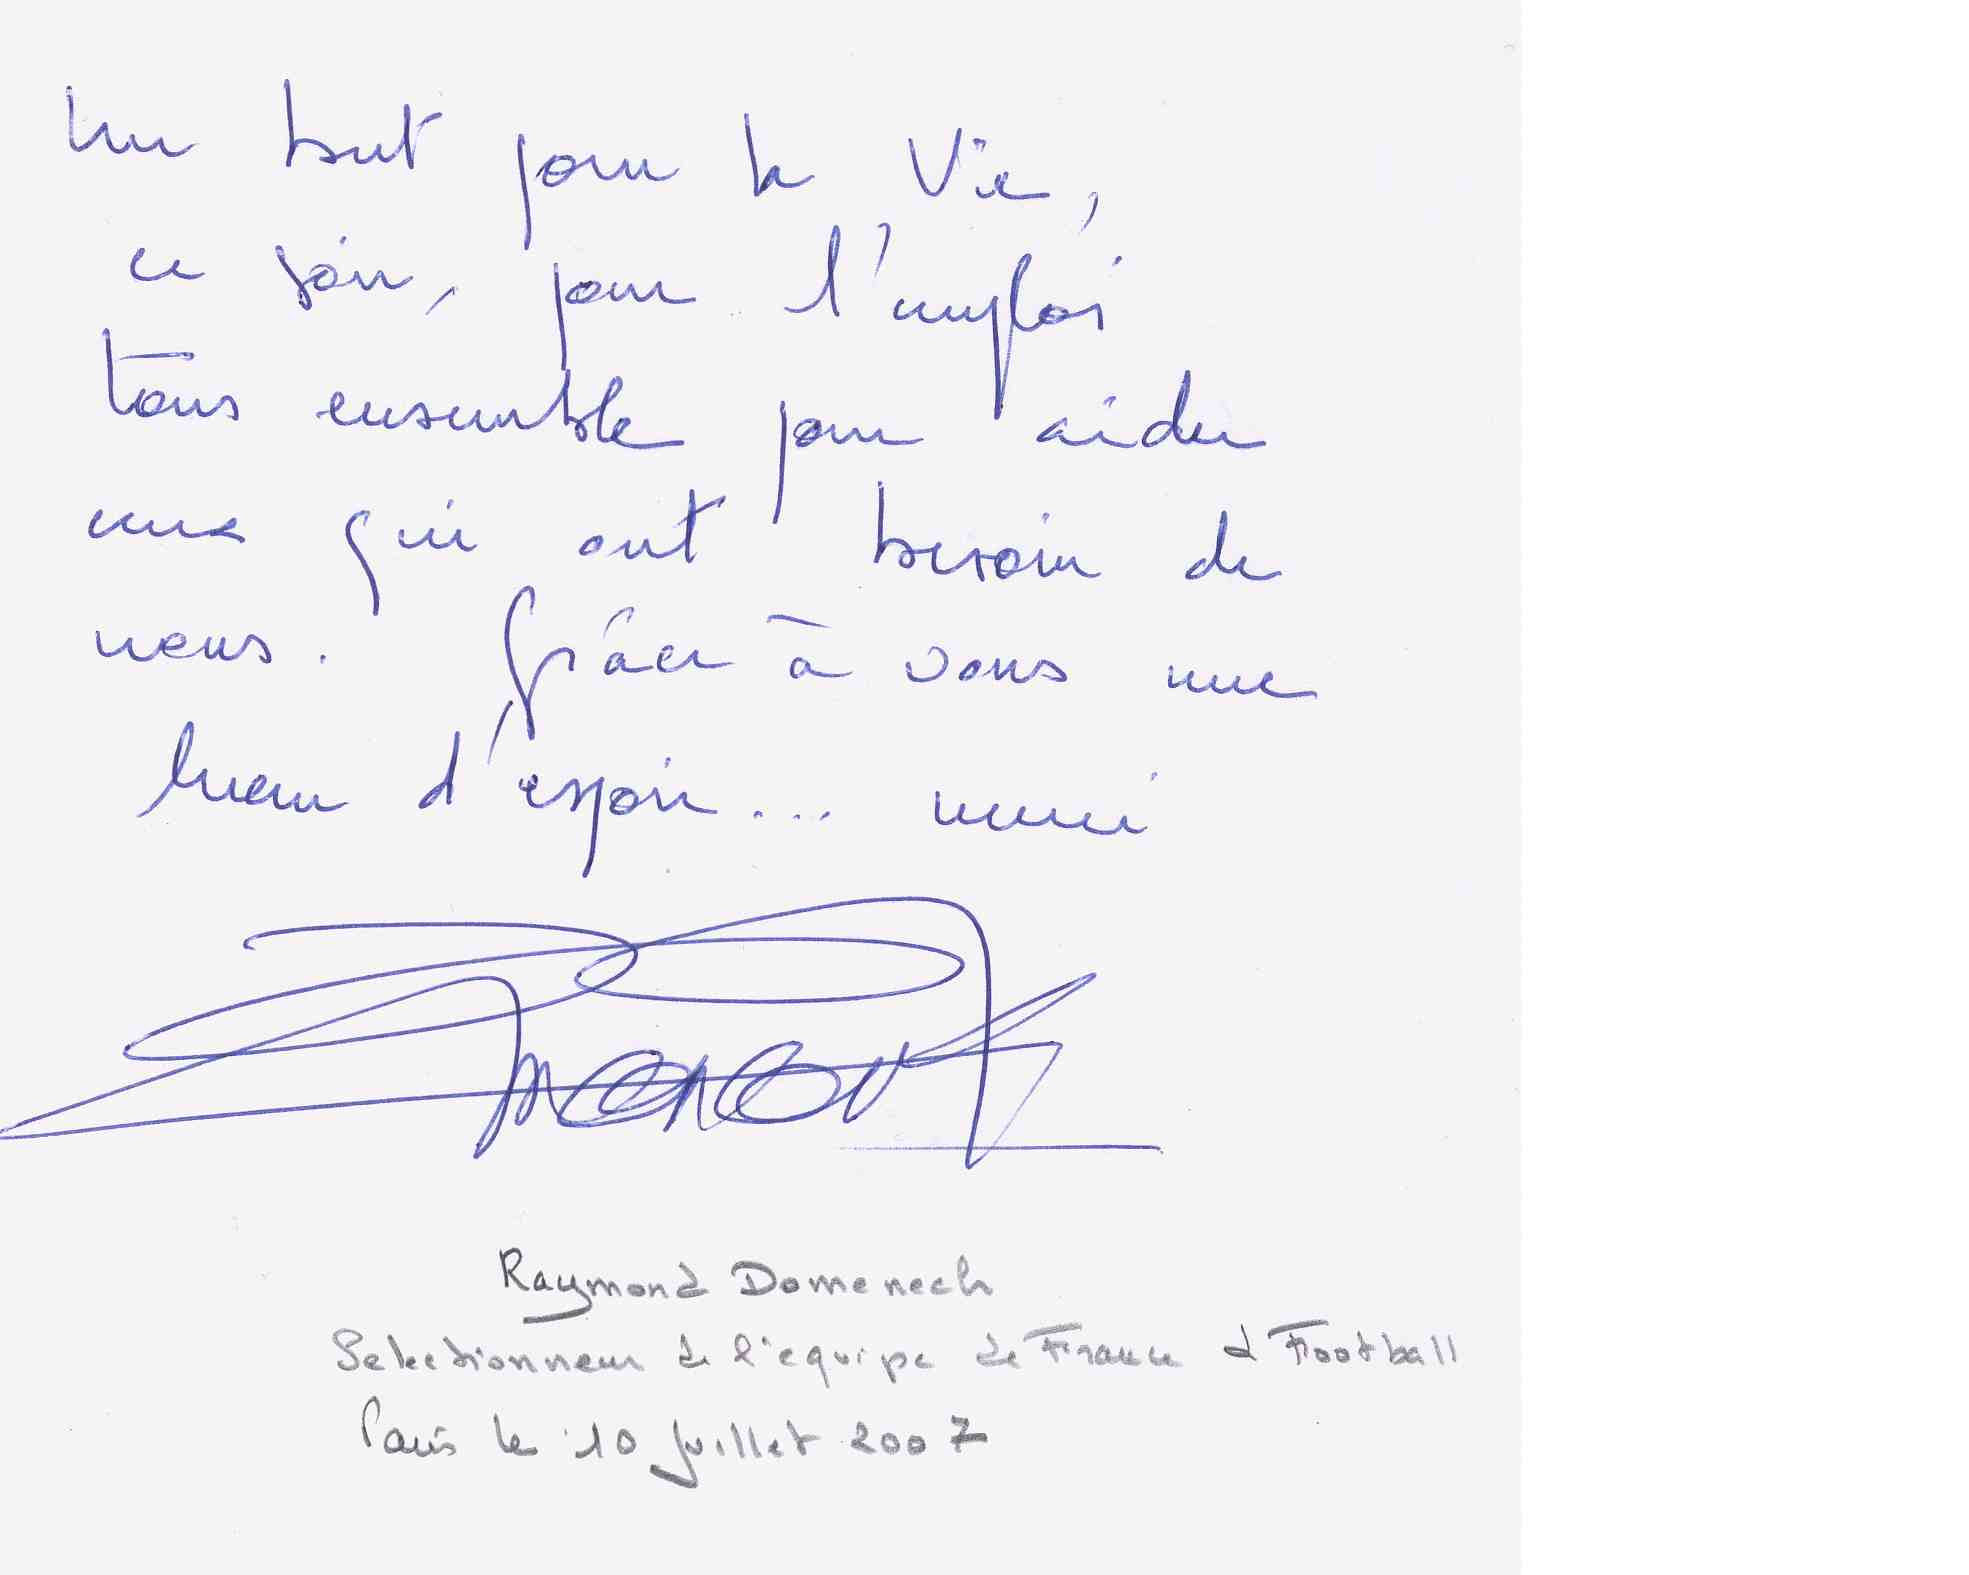 Un but pour la Vie,
ce soir, pour l'emploi
tous ensemble pour aider
ceux qui ont besoin de
nous. Grâce à vous une
lueur d'espoir... merci
Raymond Domenech
Selectionneur de l'equipe de France d Football
Paris le 10 Juillet 2007